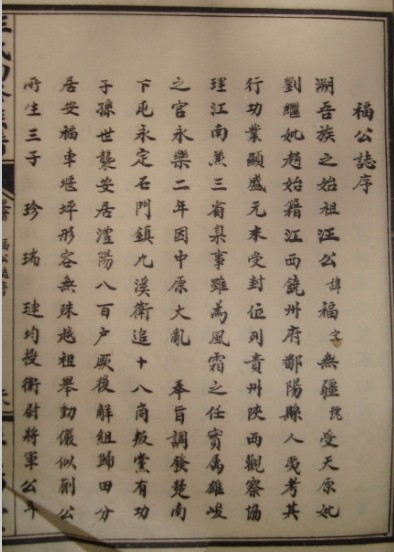 福公誌序
溯吾族之始祖汪公諱福字無疆號受天原妣
劉繼妣趙始籍江西饒州府鄱陽縣人㦯考其
行功業顯盛元末受封位列貴州陝西觀察協
理江南兼三省臬事雖為風霜之任實屬雄峻
之官永樂二年因中原大亂 奉旨調發楚南
下屯永定石門鎮九溪衛追十八崗叛黨有功
子孫世襲安居澧陽八百户厥後解組歸田分
居安福車堰坪形容無殊越祖舉動儼似創公
所生三子 珍 瑞 璉均授衛尉將軍公平
福公誌序